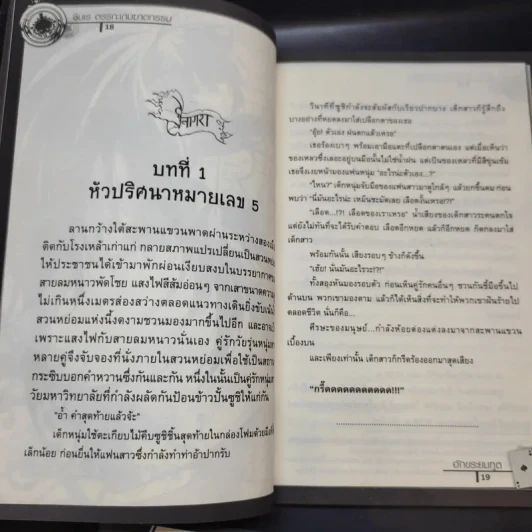 18
บทที่ 1
หัวปริศนาหมายเลข 5
ลานกว้างใต้สะพานแขวนพาดผ่านระหว่างสองฝั่ง
ติดกับโรงเหล้าเก่าแก่ กลายสภาพแปรเปลี่ยนเป็นสวน
ให้ประชาชนได้เข้ามาพักผ่อนเงียบสงบในบรรยากาศ
สายลมหนาวพัดโชย แสงไฟสีส้มอ่อนๆ จากเสาขนาดความ
ไม่เกินหนึ่งเมตรส่องสว่างตลอดแนวทางเดินยิ่งขับเน้น
สวนหย่อมแห่งนี้งดงามชวนมองมากขึ้นไปอีก และอาจ
เพราะแสงไฟกับสายลมหนาวนั่นเอง คู่รักวัยรุ่นหนุ่ม
หลายคู่จึงจับจองที่นั่งภายในสวนหย่อมเพื่อใช้เป็นสถาน
กระซิบบอกคำหวานซึ่งกันและกัน หนึ่งในนั้นเป็นคู่รัก
วัยมหาวิทยาลัยที่กำลังผลัดกันป้อนข้าวปั้นซูชิให้แก่กัน
"อ้ำ คำสุดท้ายแล้วจ้ะ"
เด็กหนุ่มใช้ตะเกียบไม้คีบซูชิชิ้นสุดท้ายในกล่องโฟมด้วย
เล็กน้อย ก่อนยื่นให้แฟนสาวซึ่งกำลังทำท่าอ้าปากรับ
วินาทีที่ซูชิกำลังจะสัมผัสกับเรียวปากบาง เด็กสาวก็รู้สึกถึง
บางอย่างที่หยดลงมาใส่เปลือกตาของเธอ
"อุ๊ย! ตัวเอง ฝนตกแล้วเหรอ"
เธอร้องเบาๆ พร้อมเอามือแตะที่เปลือกตาตนเอง แต่เมื่อเห็นว่า
ของเหลวซึ่งเลอะอยู่บนมือนั้นไม่ใช่น้ำฝน แต่เป็นของเหลวที่มีสีขุ่นเข้ม
เธอจึงเงยหน้ามองแฟนหนุ่ม "อะไรน่ะตัวเอง...?"
"ไหน?" เด็กหนุ่มจับมือของแฟนสาวมาดูใกล้ๆ แล้วยกขึ้นดม ก่อน
พบว่า "นี่มันอะไรน่ะ เหม็นชะมัดเลย เลือดงั้นเหรอ!?"
"เลือด...!?! เลือดของเราเหรอ" น้ำเสียงของเด็กสาวกระตนตกใจ
แต่ยังไม่ทันที่จะได้รับคำตอบ เลือดอีกหยด แล้วก็อีกหยด ก็ตกลงมาใส่
เด็กสาว
พร้อมกันนั้น เสียงรอบๆ ข้างก็ดังขึ้น
"เฮ้ย! นั่นมันอะไรวะ!?"
ทั้งสองหันมองรอบตัว ก่อนเห็นคู่รักคนอื่นๆ ชวนกันชี้มือขึ้นไป
ด้านบน พวกเขามองตาม แล้วก็ได้เห็นสิ่งที่จะทำให้พวกเขาฝันร้ายไป
ตลอดชีวิต นั่นก็คือ...
ศีรษะของมนุษย์...กำลังห้อยต่องแต่งลงมาจากสะพานแขวน
เบื้องบน
และเพียงเท่านั้น เด็กสาวก็กรีดร้องออกมาสุดเสียง
"กรี๊ดดดดดดดดดดด!!!"
อักขระยมทูต
19